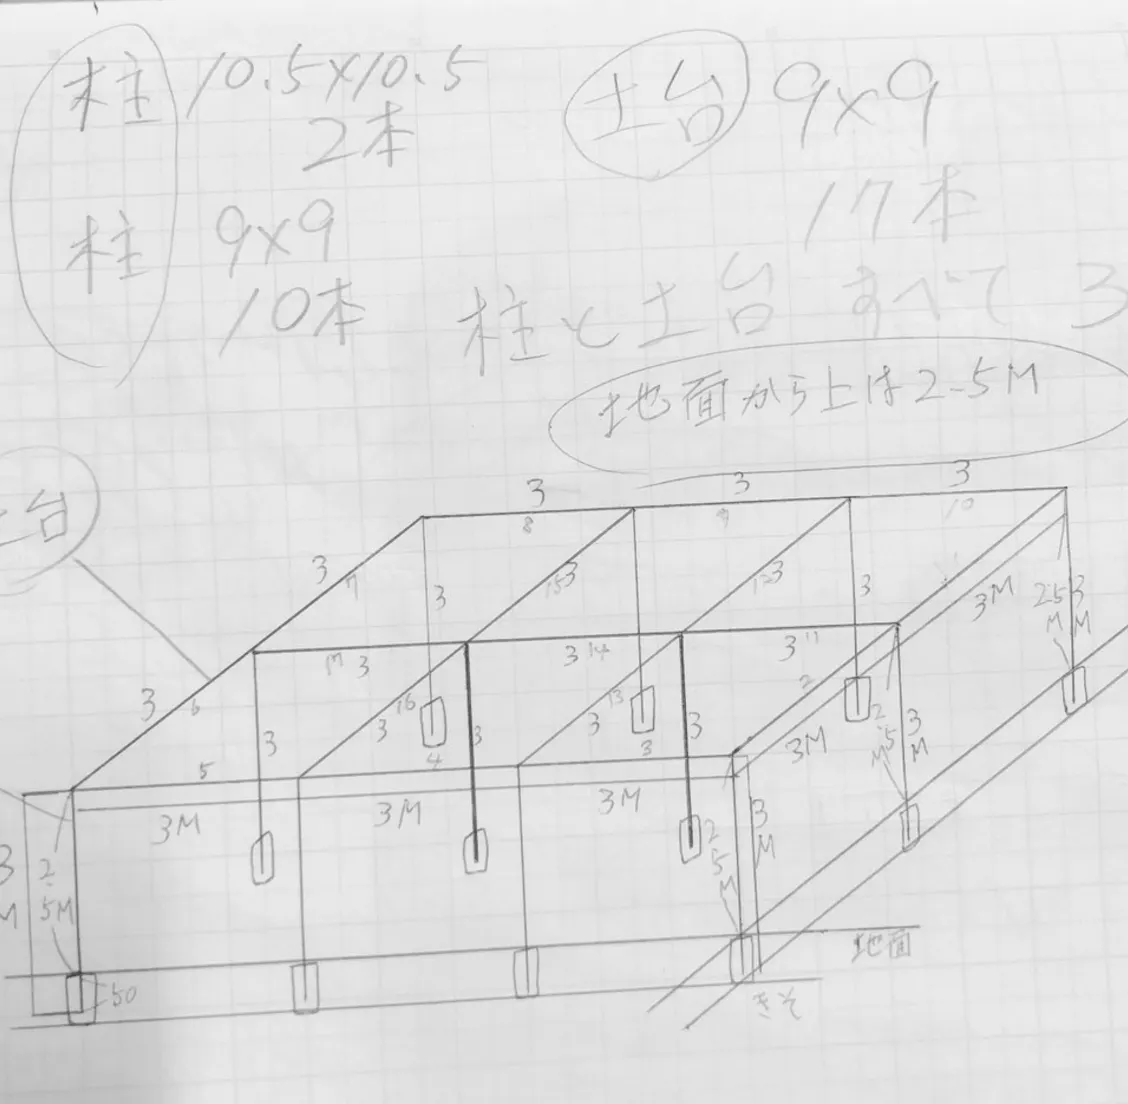 柱 10.5×10.5
2本
土台 9×9
17本
柱 9×9
10本
柱と土台 すべて 3
地面から上は2.5M
土台
3
3
3
8
9
10
3
7
3
15
3
12
3
3
3
3M
2.5
M
3
M
17
3
3
14
3
11
3
6
3
16
3
3
13
3
3
2
3M
2.5
M
3
M
5
4
3
3
3M
3M
3M
3
M
2.5M
2.5M
3
M
50
地面
きそ